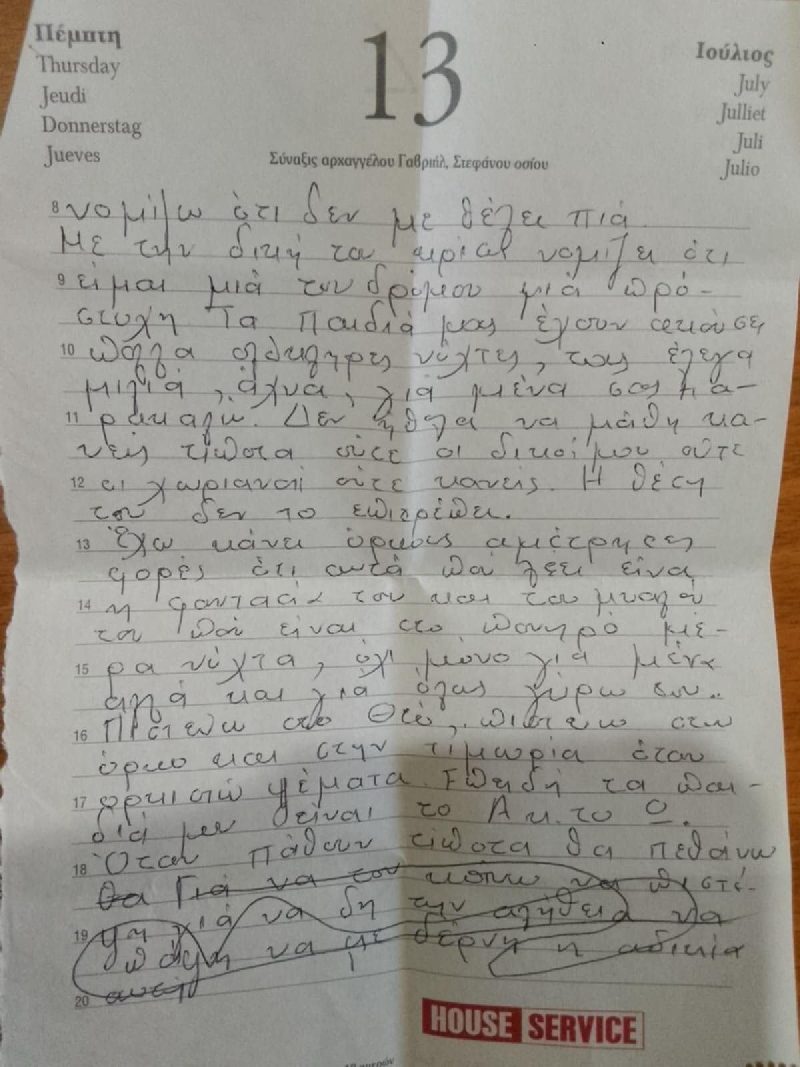 Πέμπτη
Thursday
Jeudi
Donnerstag
Jueves
13
Ιούλιος
July
Julliet
Juli
Julio
Σύναξις αρχαγγέλου Γαβριήλ, Στεφάνου οσίου
8 νομίζω ότι δεν με θέλει πιά
Με την δική του νομίζει ότι
9 είμαι μιά του δρόμου μιά πρό-
στυχη Τα Παιδιά μας έχουν ακούσει
10 πολλά ολόκληρες νύχτες, τους έλεγα
μιλιά, άχνα, γιά μένα σας πα-
11 ρακαλώ. Δεν ήθελα να μάθη κα-
νείς τίποτα ούτε οι δικοί μου ούτε
12 οι χωριανοί ούτε κανείς. Η θέση
του δεν το επιτρέπει.
13 Έχω κάνει όρκους αμέτρητες
φορές ότι αυτά που λέει είναι
14 η φαντασία του και του μυαλού
του που είναι στο πονηρό μέ-
15 ρα νύχτα, όχι μόνο γιά μένα
αλλά και γιά όλους γύρω του..
16 Πιστεύω στο Θεό, πιστεύω στον
όρκο και στην τιμωρία όταν
17 ορκιστώ ψέματα. Επειδή τα παι-
διά μου είναι το Α κ. το Ω.
18 Όταν Πάθουν τίποτα θα πεθάνω
θα Γιά να τον κάνω να πιστέ-
19 ψη γιά να δη την αλήθεια να
πάψη να με δέρνη η αδικία
20 αυτή
HOUSE SERVICE